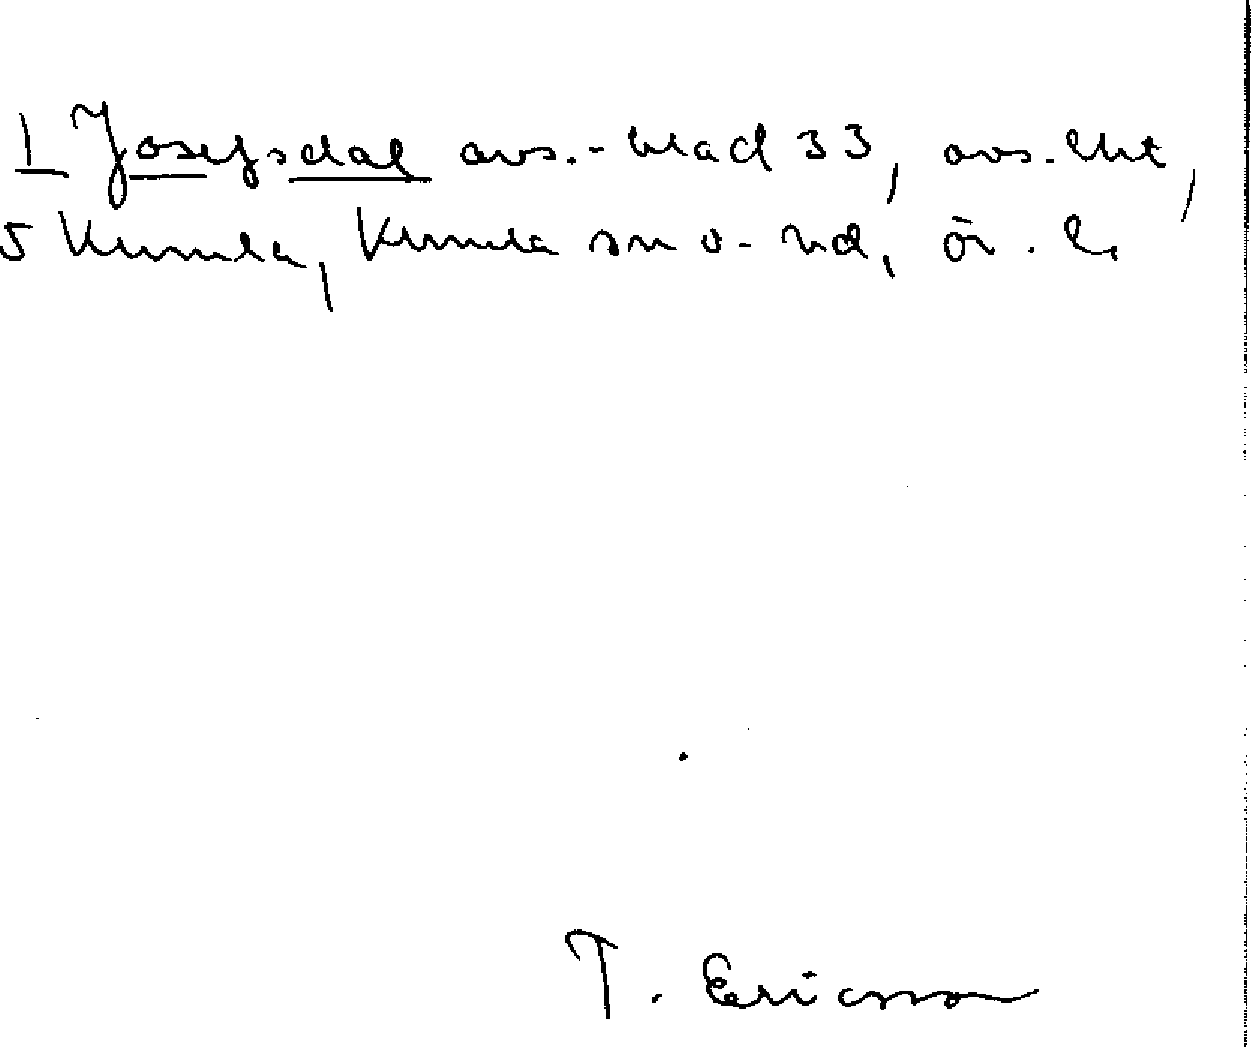 1 Josefsdal avs.-blad 33, avs. lht,
5 Kumla, Kumla sn o-hd, ör. l.
T. Ericsson